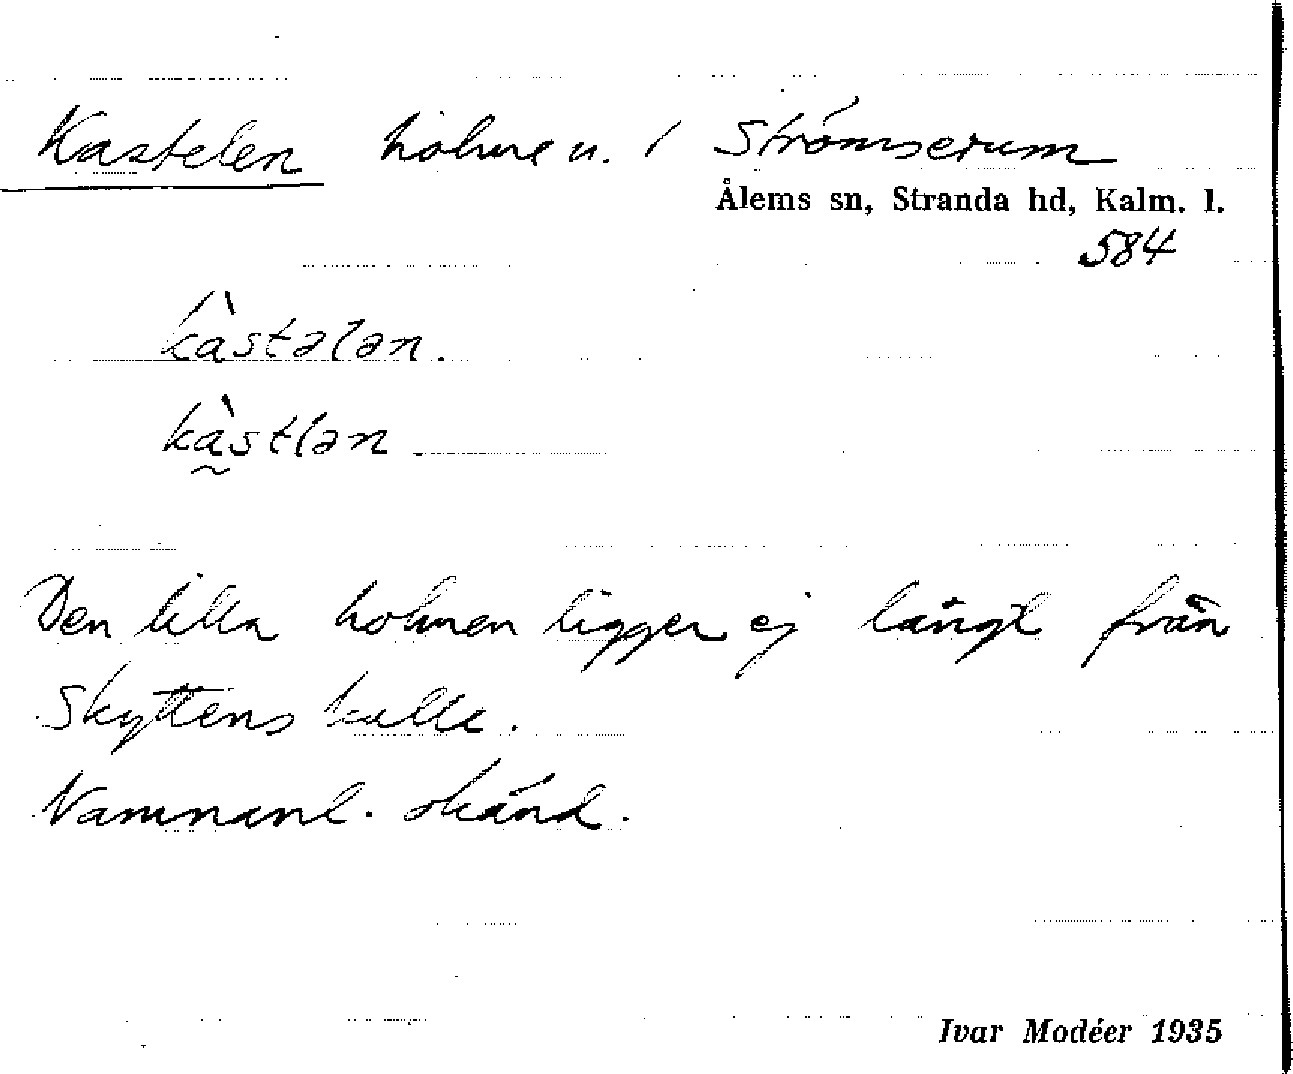 Kastelen holme u. / Strömserum
Ålems sn, Stranda hd, Kalm. l.
584
kàstələn.
kà̰stlən
Den lilla holmen ligger ej långt från
Skyttens kulle.
Namnanl. okänd.
Ivar Modéer 1935